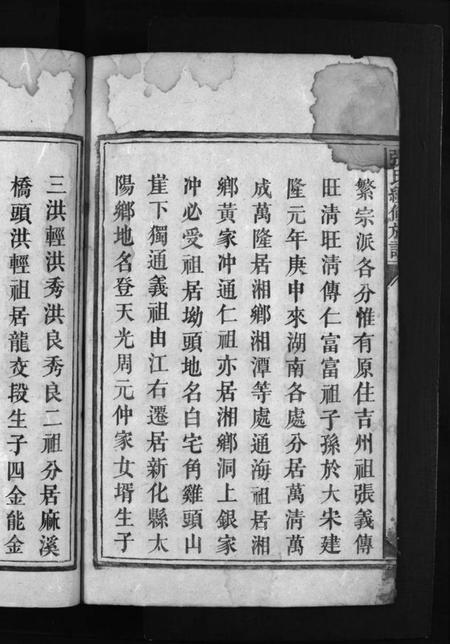 張氏續修族譜
繁宗派各分惟有原住吉州祖張義傳
旺清旺清傳仁富富祖子孫於大宋建
隆元年庚申來湖南各處分居萬清萬
成萬隆居湘鄉湘潭等處通海祖居湘
鄉黃家冲通仁祖亦居湘鄉洞上銀家
冲必受祖居坳頭地名白宅角雞頭山
崖下獨通義祖由江右遷居新化縣太
陽鄉地名登天光周元仲家女壻生子
三洪輕洪秀洪良秀良二祖分居麻溪
橋頭洪輕祖居龍玄段生子四金能金